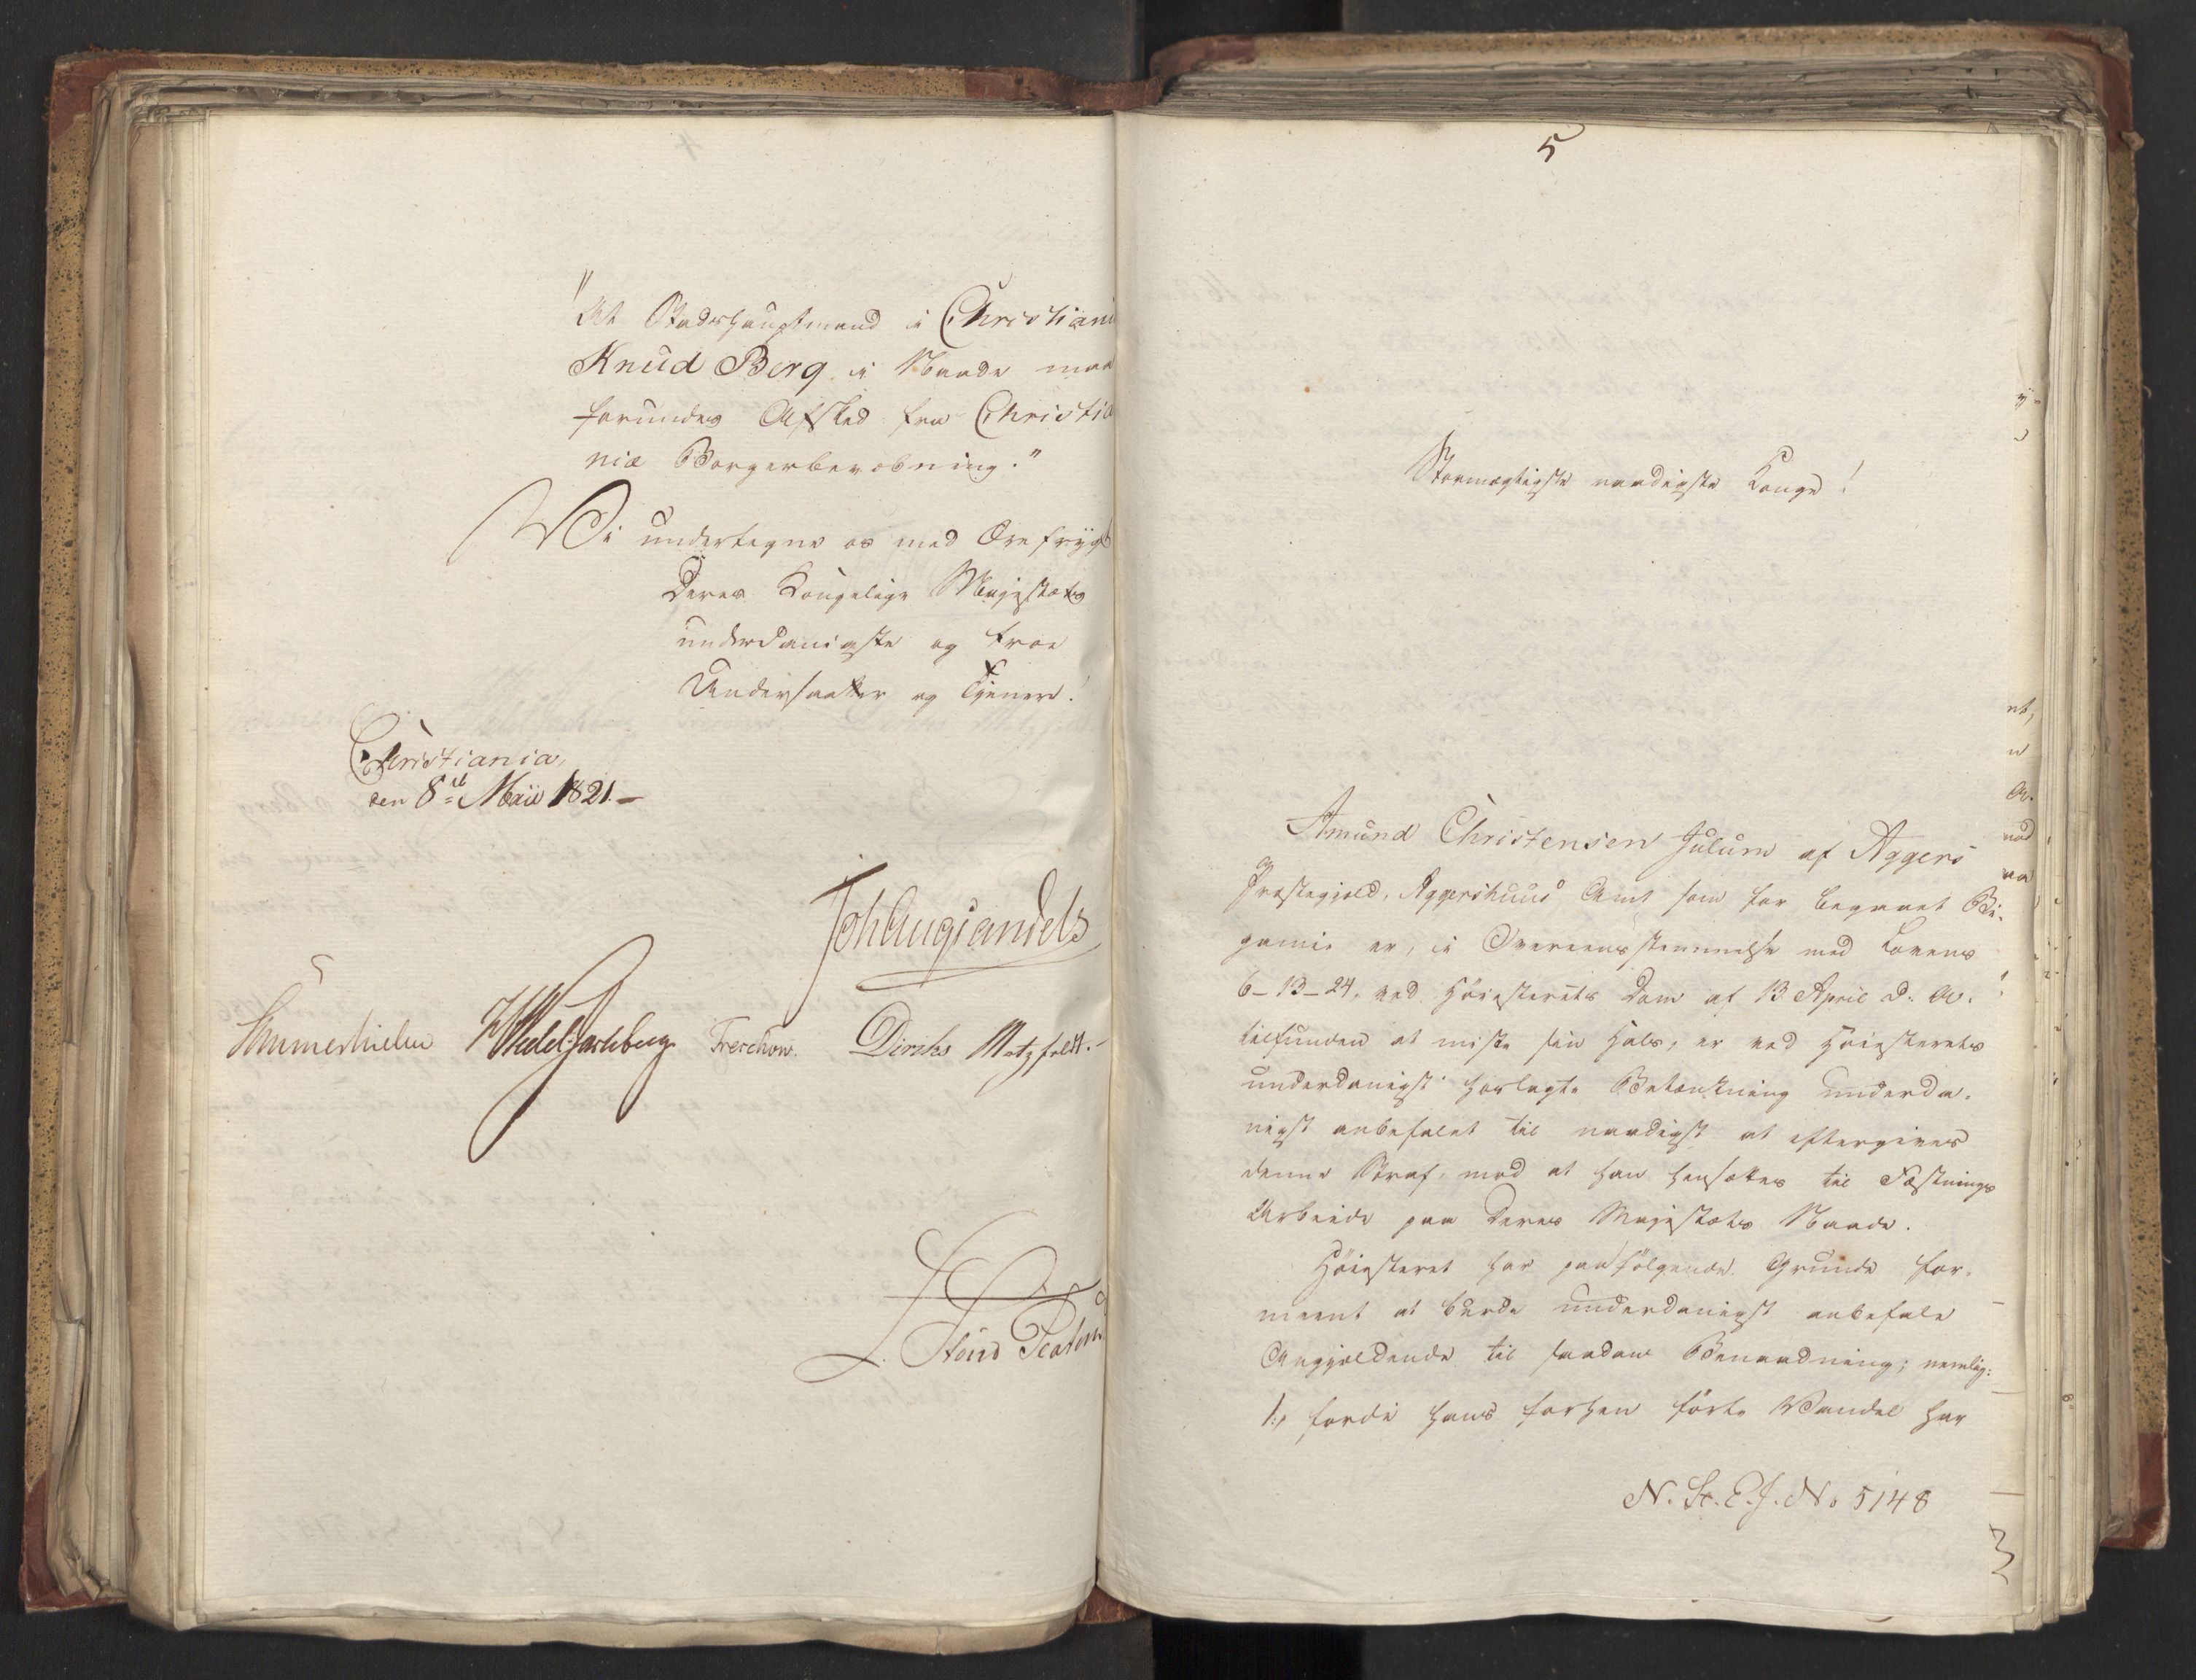 "At Stadshauptmand i Christiani
Knud Berg i Naade maa
forundes Afsked fra Christia
niæ Borgerbevæbning."
Vi undertegne os med Ærefrygt
Deres Kongelige Majestæts
underdanigste og troe
Undersaatter og Tjenere!
Christiania,
den 8de Maii 1821.-
Joh Aug Sandels
Sommerhielm HWedel Jarlsberg Treschow. Diriks Motzfeldt.-
5
Stormægtigste naadigste Konge!
Amund Christensen Julum af Aggers
Præstegjeld, Aggershuus Amt som for begaaet Bi-
gamie er, i Overeensstemmelse med Lovens
6-13-24, ved Höiesterets Dom af 13 April d. A.
tilfunden at miste sin Hals, er ved Höiesterets
underdanigst hoslagte Betænkning underda-
nigst anbefalet til naadigst at eftergives
denne Straf, mod at han hensættes til Fæstnings
Arbeide paa Deres Majestæts Naade.
Höiesteret har paa fölgende Grunde for-
meent at burde underdanigst anbefale
Angjældende til saadan Benaadning; nemlig:
1., fordi hans forhen förte Vandel har
N. St. E. J. No 5148